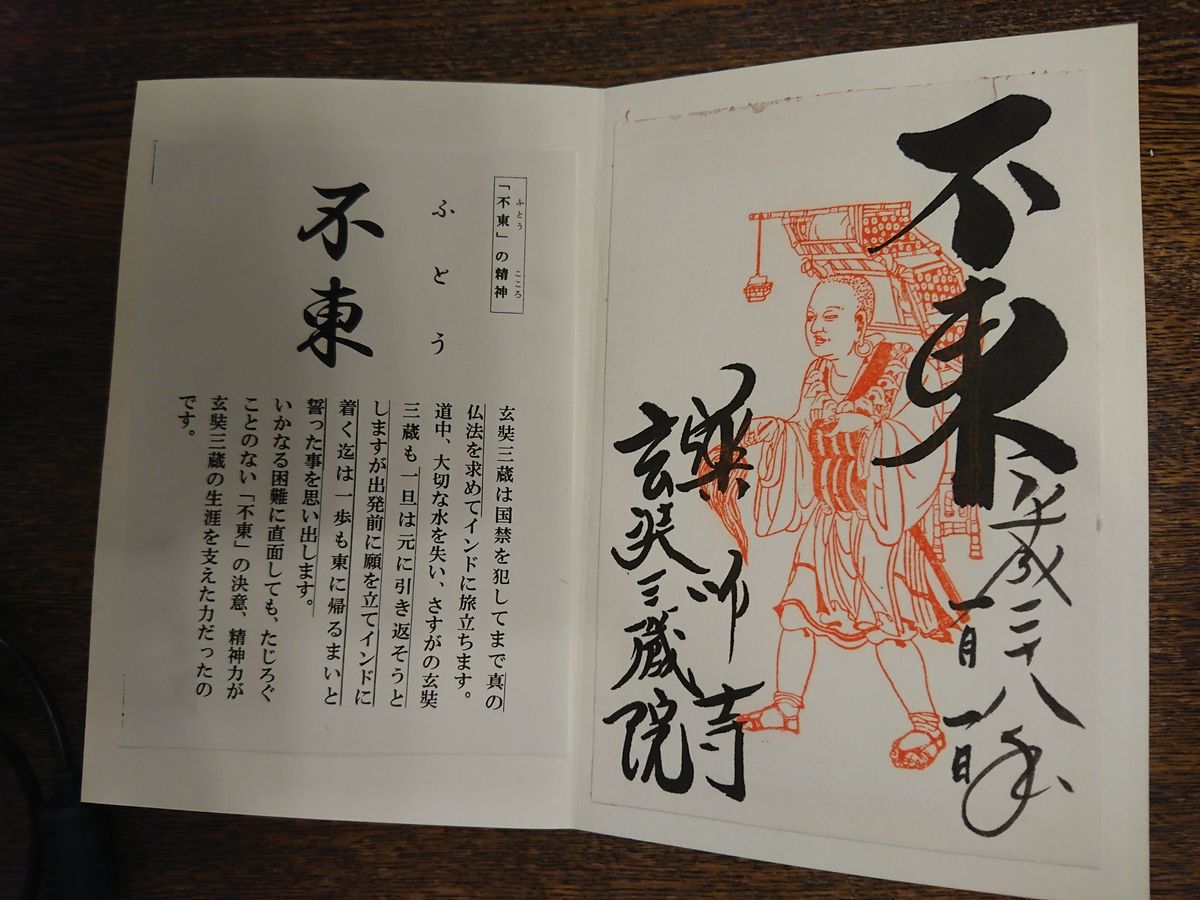 不東
平成二十八年
一月一日
薬師寺
玄奘三蔵院
「不東」の精神
ふとう
こころ
ふとう
不東
玄奘三蔵は国禁を犯してまで真の
仏法を求めてインドに旅立ちます。
道中、大切な水を失い、さすがの玄奘
三蔵も一旦は元に引き返そうと
しますが出発前に願を立てインドに
着く迄は一歩も東に帰るまいと
誓った事を思い出します。
いかなる困難に直面しても、たじろぐ
ことのない「不東」の決意、精神力が
玄奘三蔵の生涯を支えた力だったの
です。